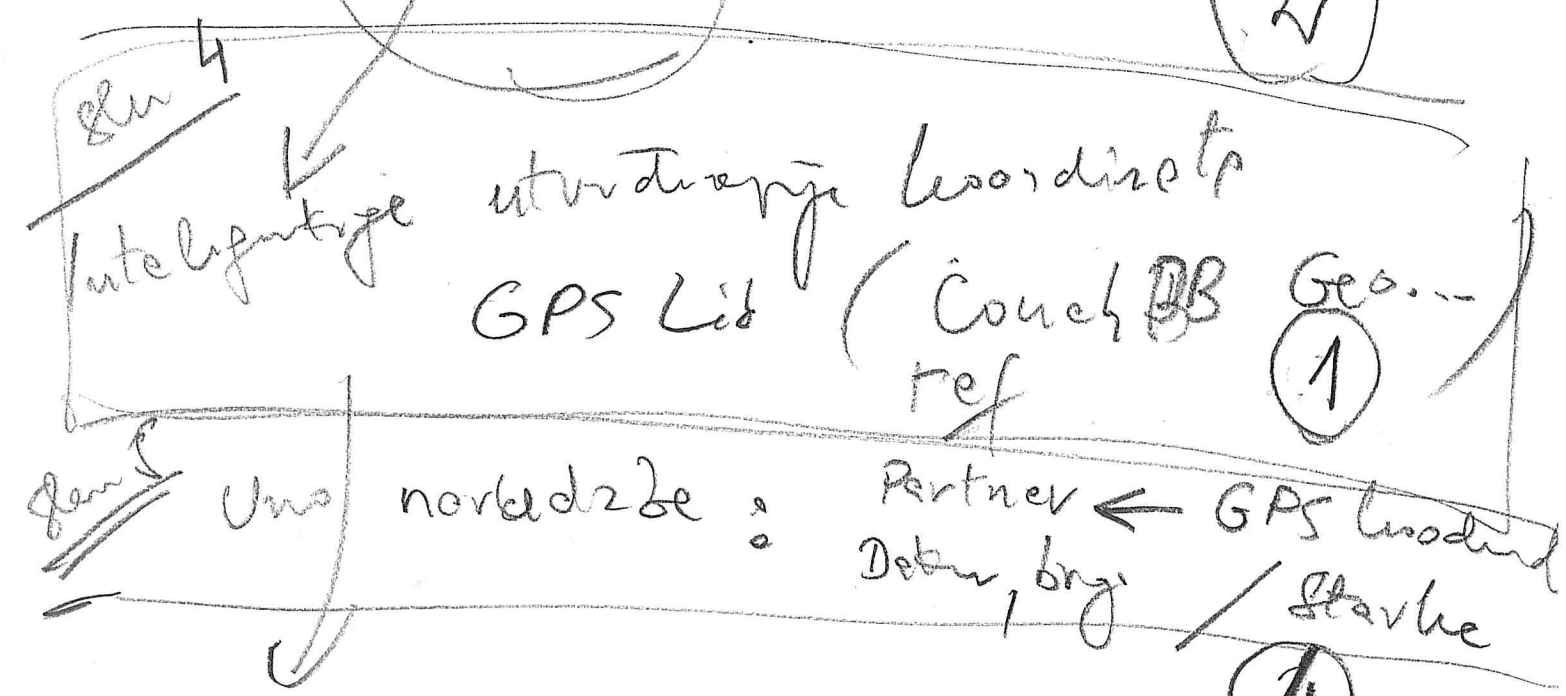 2
4
Inteligentnije utvrđivanje koordinata
GPS Lib (CouchBB Geo...)
ref
1
5
Unos narudžbe : Partner ← GPS koodind
Datum, broj / Stavke